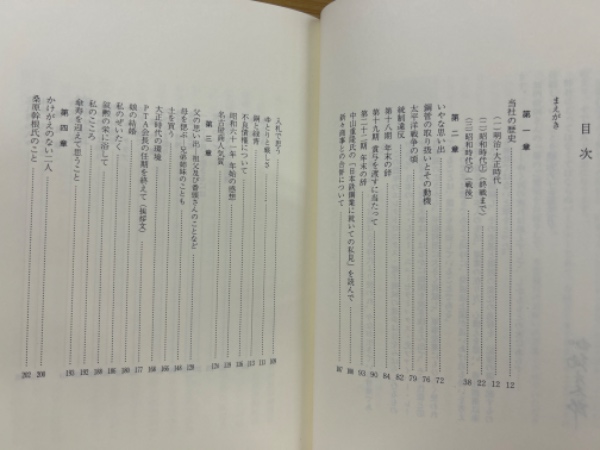 目次
まえがき
第一章
当社の歴史 12
(一)明治・大正時代 12
(二)昭和時代①(終戦まで) 22
(三)昭和時代②(戦後) 38
第二章
いやな思い出 72
鋼管の取り扱いとその動機 76
太平洋戦争の頃 79
統制違反 82
第十八期 年末の辞 84
第十九期 賞与を渡すに当たって 90
第二十二期 年末の辞 93
中山 を読んで
新々商事との合併について 107
入札で思う 109
ゆとりと厳しさ 111
鋼と経済 112
不良債権について 113
昭和六十一年 年始の感想 116
名古屋商人気質 119
第三章
父の思い出・祖父及び番頭さんのことなど 128
母を偲ぶ・兄弟姉妹のことも 148
土を買う 166
大正時代の環境 168
PTA会長の任期を終えて(挨拶文) 177
娘の結婚 180
私のぜいたく 184
叙勲の栄に浴して 186
私のこころ 188
傘寿を迎えて思うこと 193
第四章
かけがえのない二人 200
桑原幹根氏のこと 202